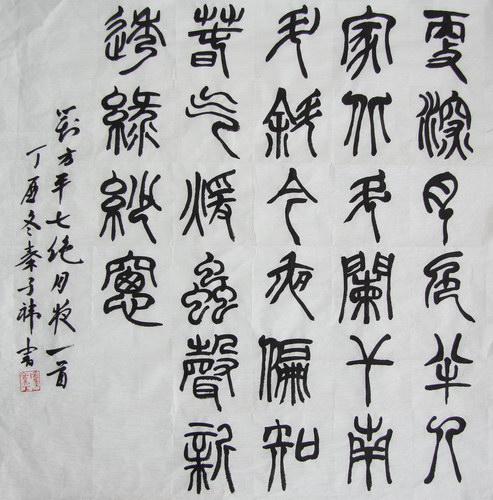 更深月色半人
家北斗闌干南
斗斜今夜偏知
春气暖蟲聲新
透綠紗窗
劉方平七绝月夜一首
丁酉冬秦子书